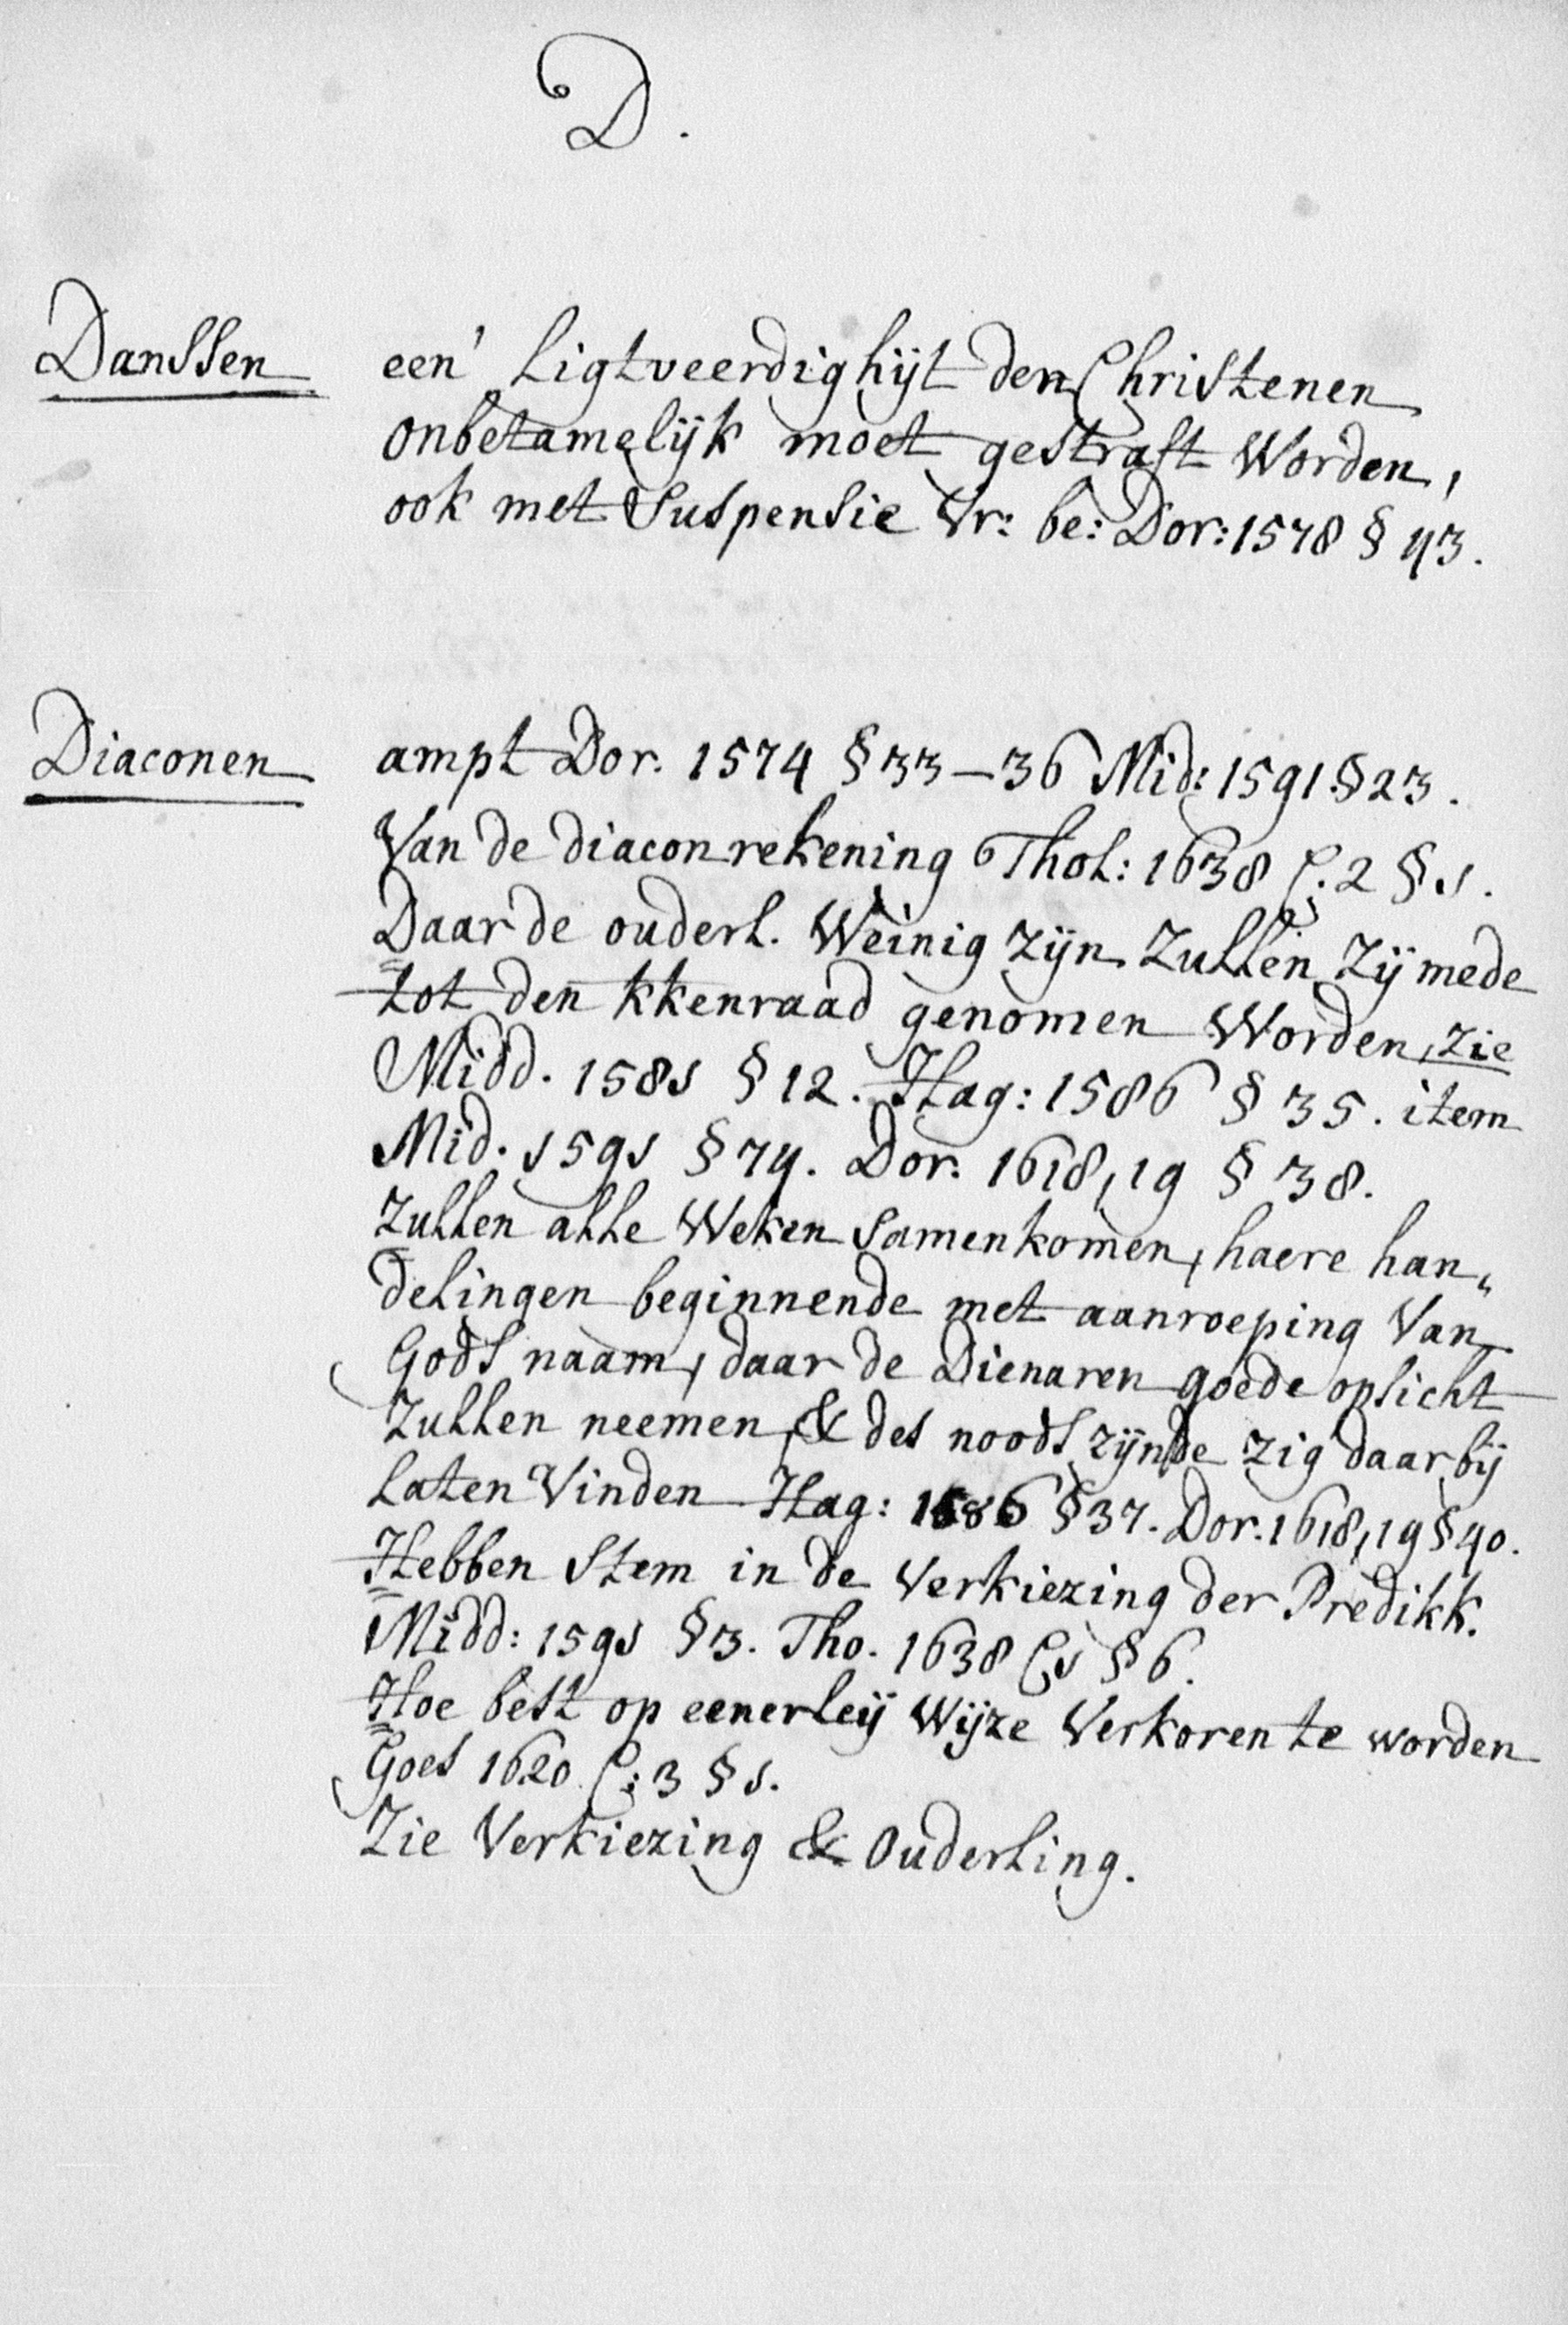 D.
Danssen een' Ligtveerdighijt den Christenen
onbetamelijk moet gestraft Worden,
ook met Suspensie Vr: be: Dor: 1578 § 43.
Diaconen ampt Dor. 1574 § 33-36 Mid: 1591. § 23.
Van de diaconrekening Thol: 1638 C. 2 § 1.
Daar de ouderl. Weinig zijn Zullen Zij mede
tot den kkenraad genomen Worden, zie
Midd. 1581 § 12. Hag: 1586 § 35. item
Mid. 1591 § 74. Dor. 1618,19 § 38.
Zullen alle Weken Samenkomen, haere han„
delingen beginnende met aanroeping Van
Gods naam, daar de Dienaren goede opsicht
Zullen neemen, & des noods zijnde zig daar bij
Laten Vinden Hag: 1586 § 37. Dor. 1618,19 § 40.
Hebben Stem in de Verkiezing der Predikk.
Midd: 1591 § 3. Tho. 1638 C1 § 6.
Hoe best op eenerleij Wijze Verkoren te worden
Goes 1620 C: 3 § 1.
Zie Verkiezing & Ouderling.